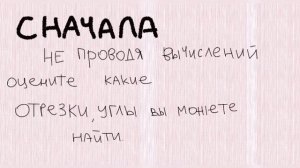 СНАЧАЛА
НЕ ПРОВОДЯ ВЫЧИСЛЕНИЙ
ОЦЕНИТЕ КАКИЕ
ОТРЕЗКИ, УГЛЫ ВЫ МОЖЕТЕ
НАЙТИ